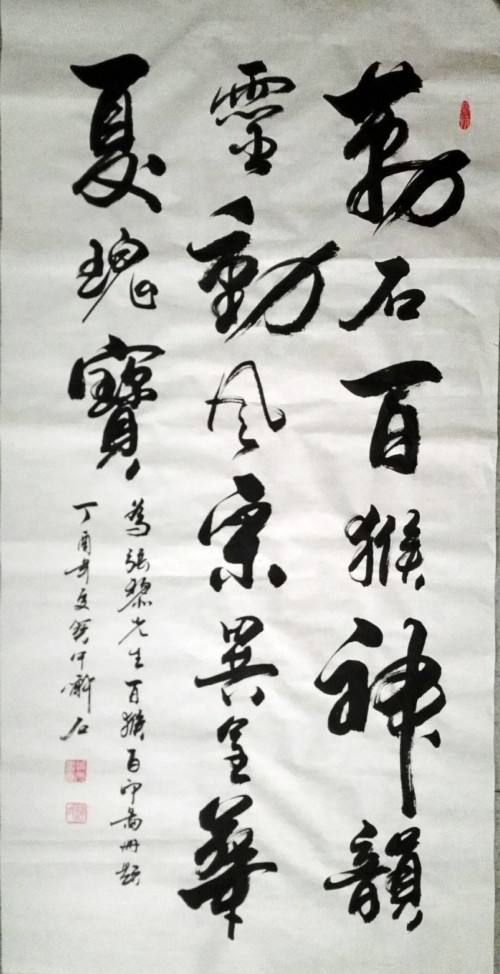 勒石百猴神韻
靈動風采異呈華
夏瑰寶
為張黎先生百猴百印圖冊題
丁酉年夏石